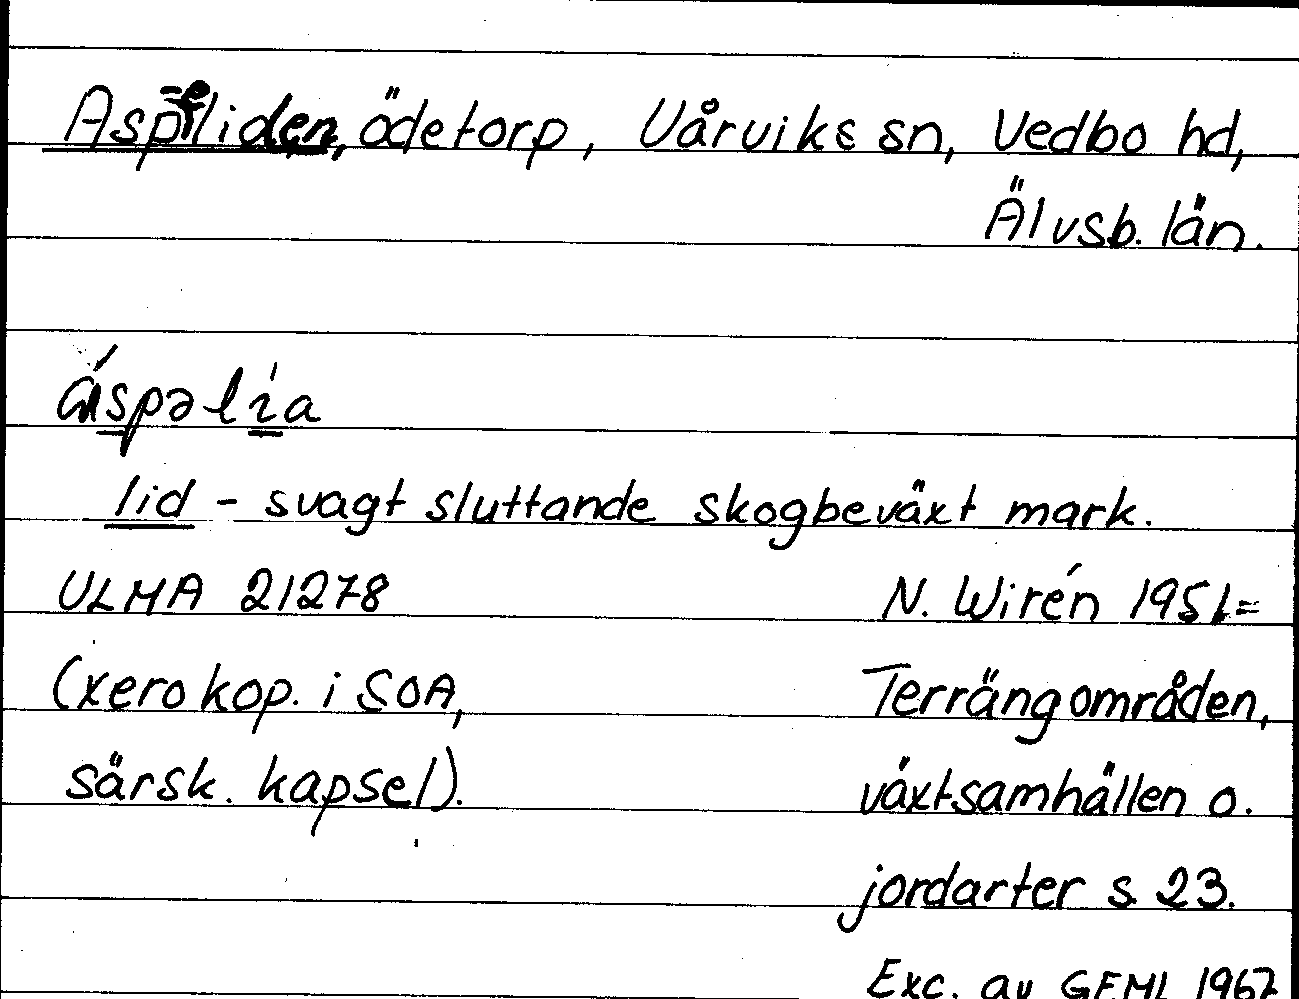 Aspeliden, ödetorp, Vårviks sn, Vedbo hd,
Älvsb. län.
áspəlía
lid - svagt sluttande skogbeväxt mark.
ULMA 21278
N. Wirén 1951=
(xerokop. i SOA,
Terrängområden,
särsk. kapsel).
växtsamhällen o.
jordarter s 23.
Exc. av GEML 1967